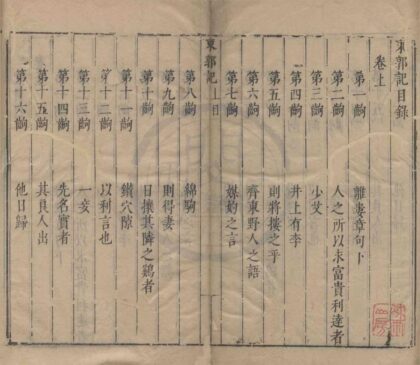 東郭記目錄
卷上
第一齣 離婁章句下
第二齣 人之所以求富貴利達者
第三齣 少艾
第四齣 井上有李
第五齣 則將摟之乎
第六齣 齊東野人之語
第七齣 媒妁之言
東郭記 上目 一
第八齣 綿駒
第九齣 則得妻
第十齣 日攘其鄰之雞者
第十一齣 鑽穴隙
第十二齣 以利言也
第十三齣 一妾
第十四齣 先名實者
第十五齣 其良人出
第十六齣 他日歸